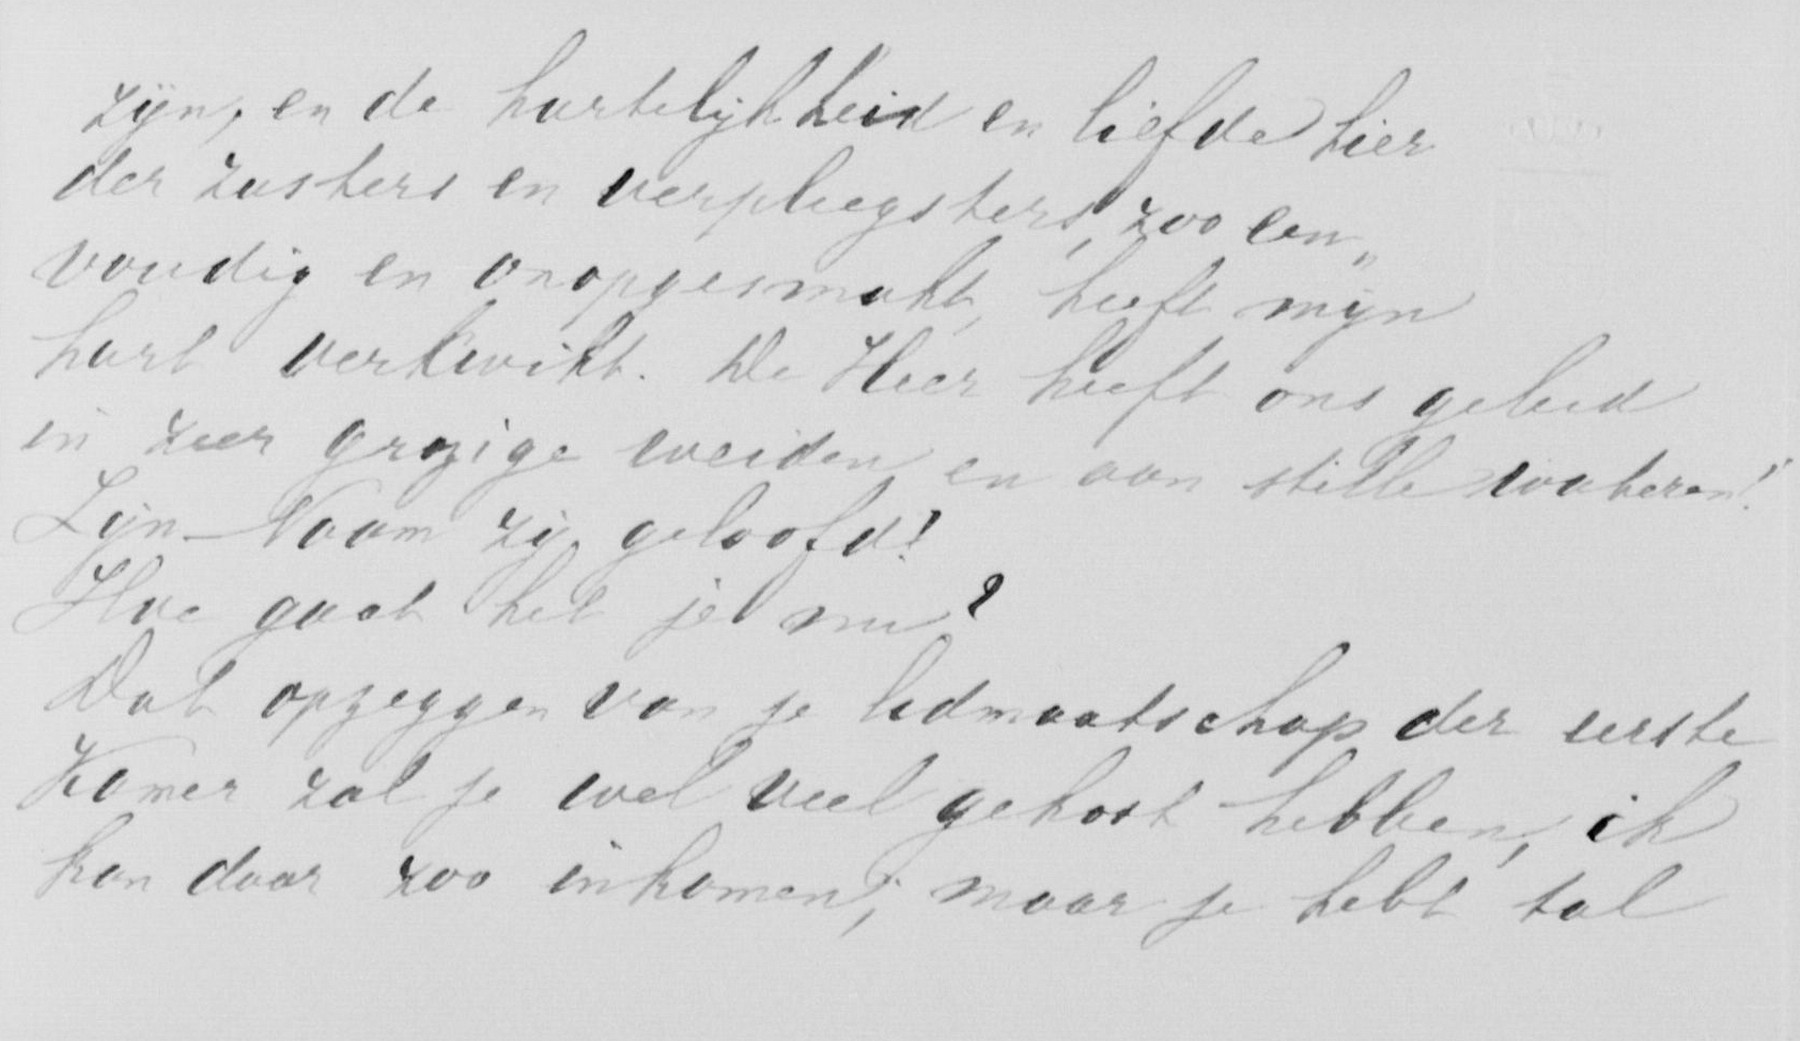 zijn, en de hartelijkheid en liefde hier
der zusters en verpleegsters, zoo een„
voudig en onopgesmukt, heeft mijn
hart verkwikt. De Heer heeft ons geleid
in zeer grazige weiden en aan stille wateren!
Zijn Naam zij geloofd!
Hoe gaat het je nu?
Dat opzeggen van je lidmaatschap der eerste
Kamer zal je wel veel gekost hebben, ik
kan daar zoo inkomen; maar je hebt tal